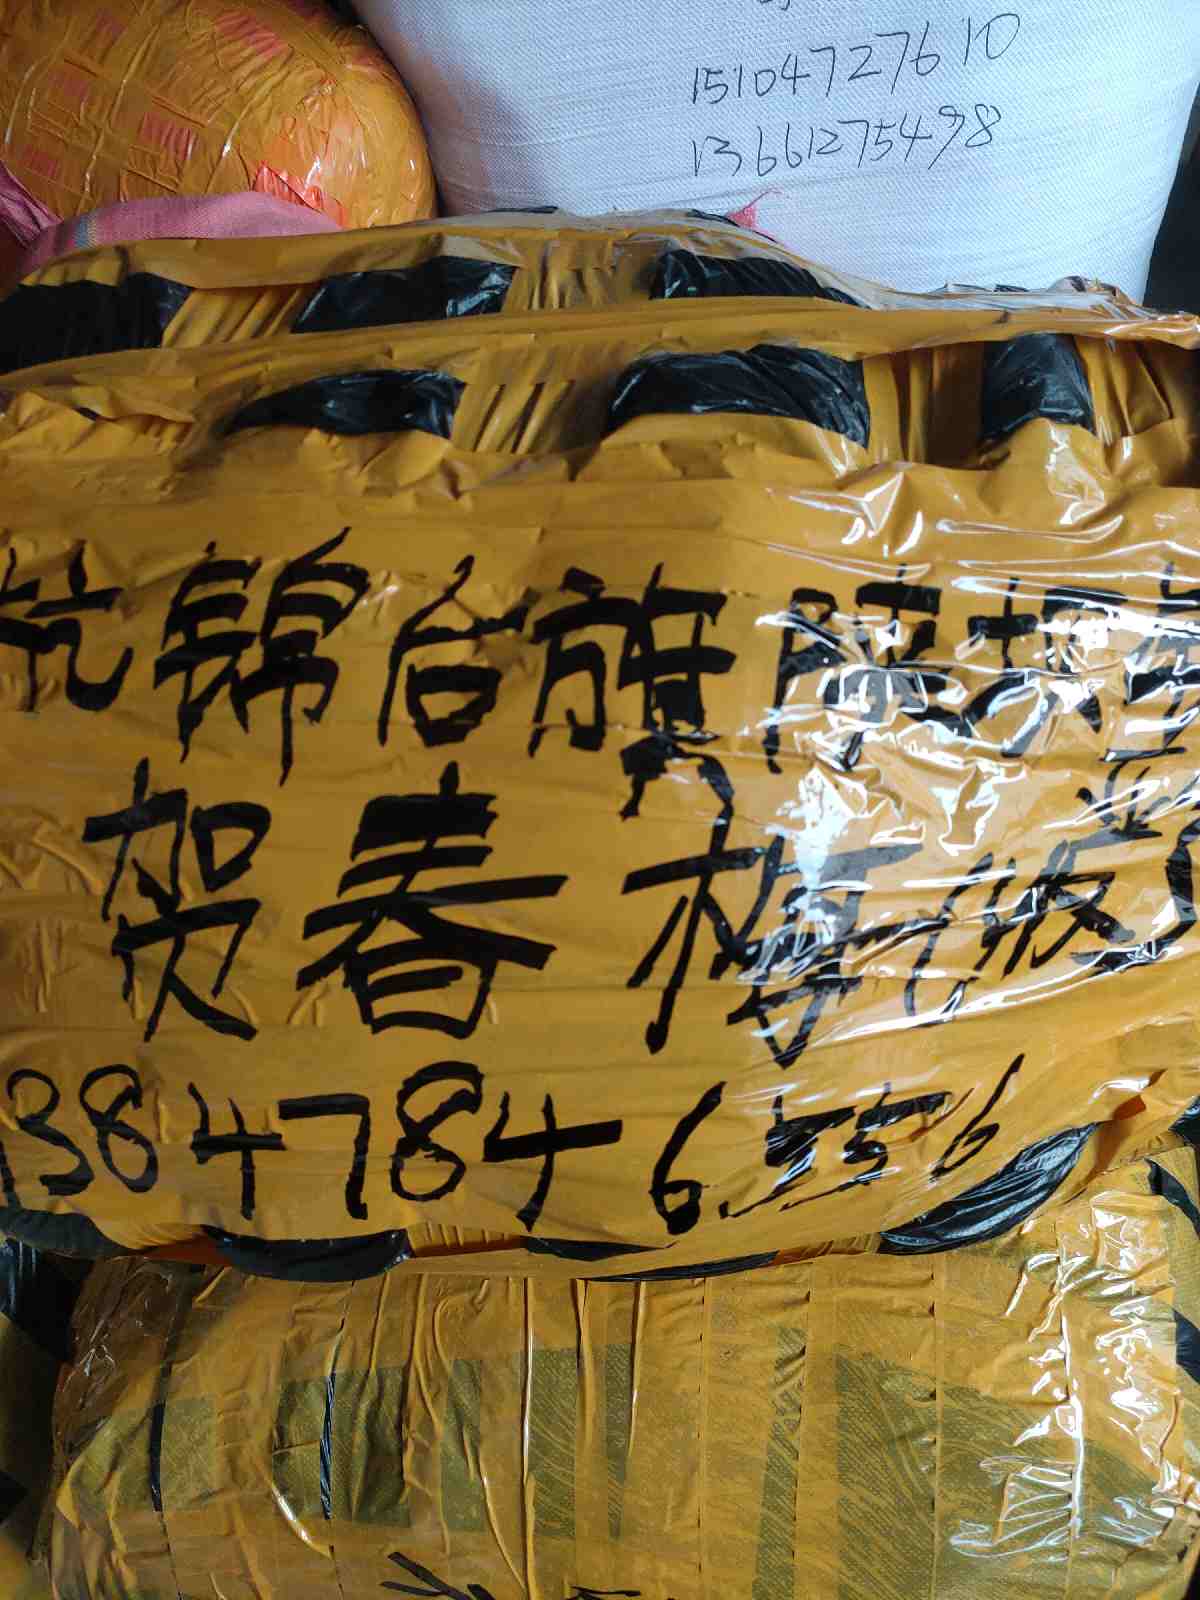 15104727610
13661275498
杭锦后旗陕坝
贺春梅
13847846556